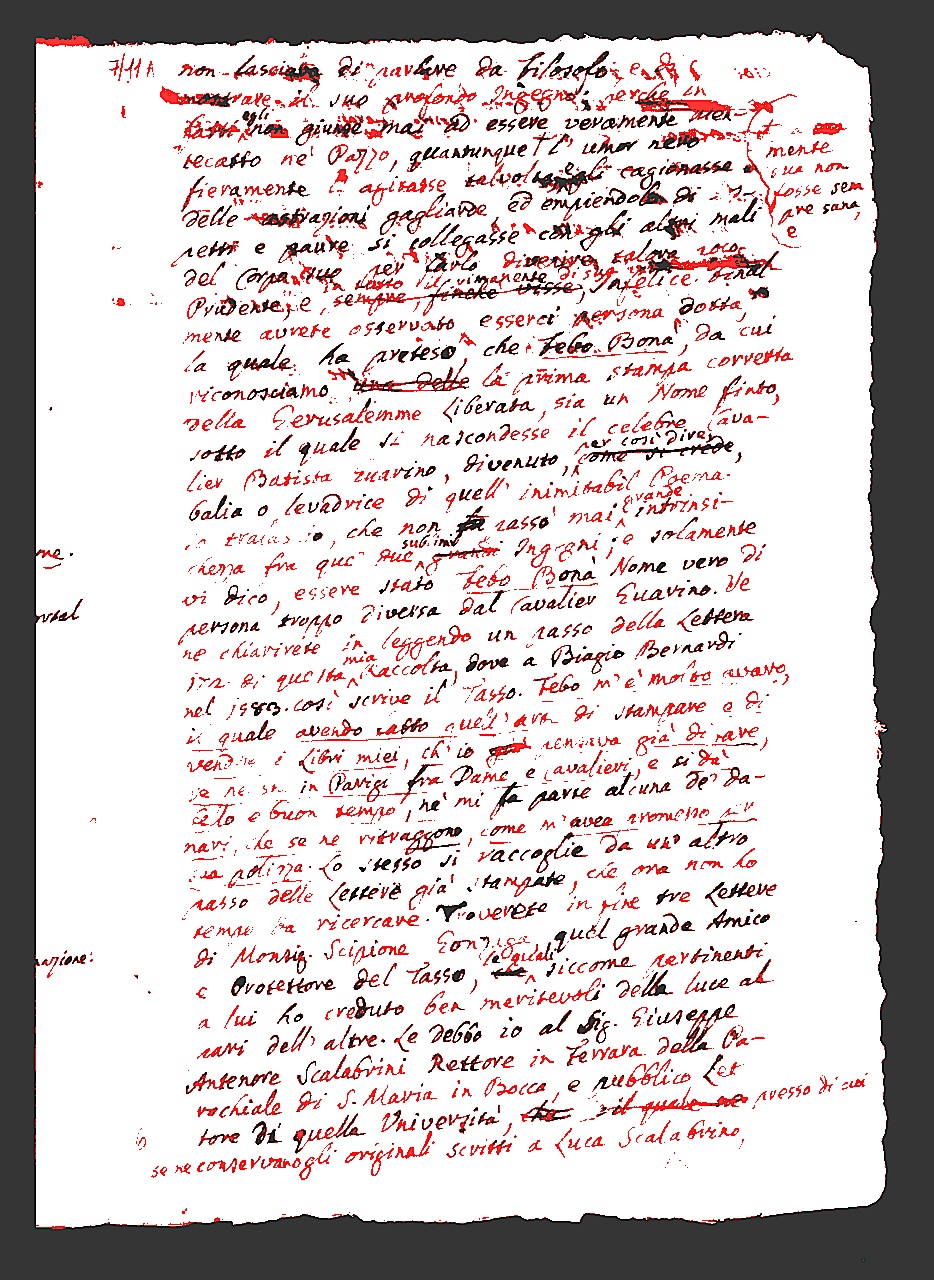 7/11 A
non lasciava di parlare da filosofo, e di
mostrare il suo profondo Ingegno; perchè in
fatti egli non giunse mai ad essere veramente men-
tecatto nè Pazzo, quantunque l'umor nero
mente
sua non
fosse sem
pre sana,
e
fieramente l'agitasse talvolta, e gli cagionasse
delle astrazioni gagliarde, ed empiendolo di
petti e paure si collegasse con gli altri mali
del Corpo suo per farlo divenire talora poco
in tutto il rimanente di sua vita
Prudente, e sempre, finchè visse, infelice. Final
mente avrete osservato esserci persona dotta,
la quale ha preteso, che Febo Bonà, da cui
riconosciamo una delle la prima stampa corretta
della Gerusalemme Liberata, sia un Nome finto,
sotto il quale si nascondesse il celebre Cava-
per così dire,
lier Batista Guarino, divenuto, come si crede,
balia o levadrice di quell' inimitabil Poema.
grande
che non passò mai intrinsi-
sublimi
chezza fra que' due grandi Ingegni; e solamente
vi dico, essere stato Febo Bonà Nome vero di
persona troppo diversa dal Cavalier Guarino. Ve
ne chiarirete in leggendo un passo della Lettera
mia
172. di questa Raccolta, dove a Biagio Bernardi
nel 1583. così scrive il Tasso. Febo m'è molto avaro,
il quale avendo fatto quell' arte di stampare e di
vendere i Libri miei, ch' io pensava già di fare,
se ne sta in Parigi fra Dame e Cavalieri, e si dà
bello e buon tempo, nè mi fa parte alcuna de' da-
nari, che se ne ritraggono, come m'avea promesso per
sua polizza. Lo stesso si raccoglie da un' altro
passo delle Lettere già stampate, che ora non ho
tempo da ricercare. Troverete in fine tre Lettere
di Monsig. Scipione Gonzaga, quel grande Amico
le quali
e Protettore del Tasso, che siccome pertinenti
a lui ho creduto ben meritevoli della luce al
pari dell' altre. Le debbo io al Sig. Giuseppe
Antenore Scalabrini Rettore in Ferrara della Pa-
rochiale di S. Maria in Bocca, e pubblico Let
tore di quella Università, che il quale ne presso di cui
se ne conservano gli originali scritti a Luca Scalabrino,
me.
nazione: